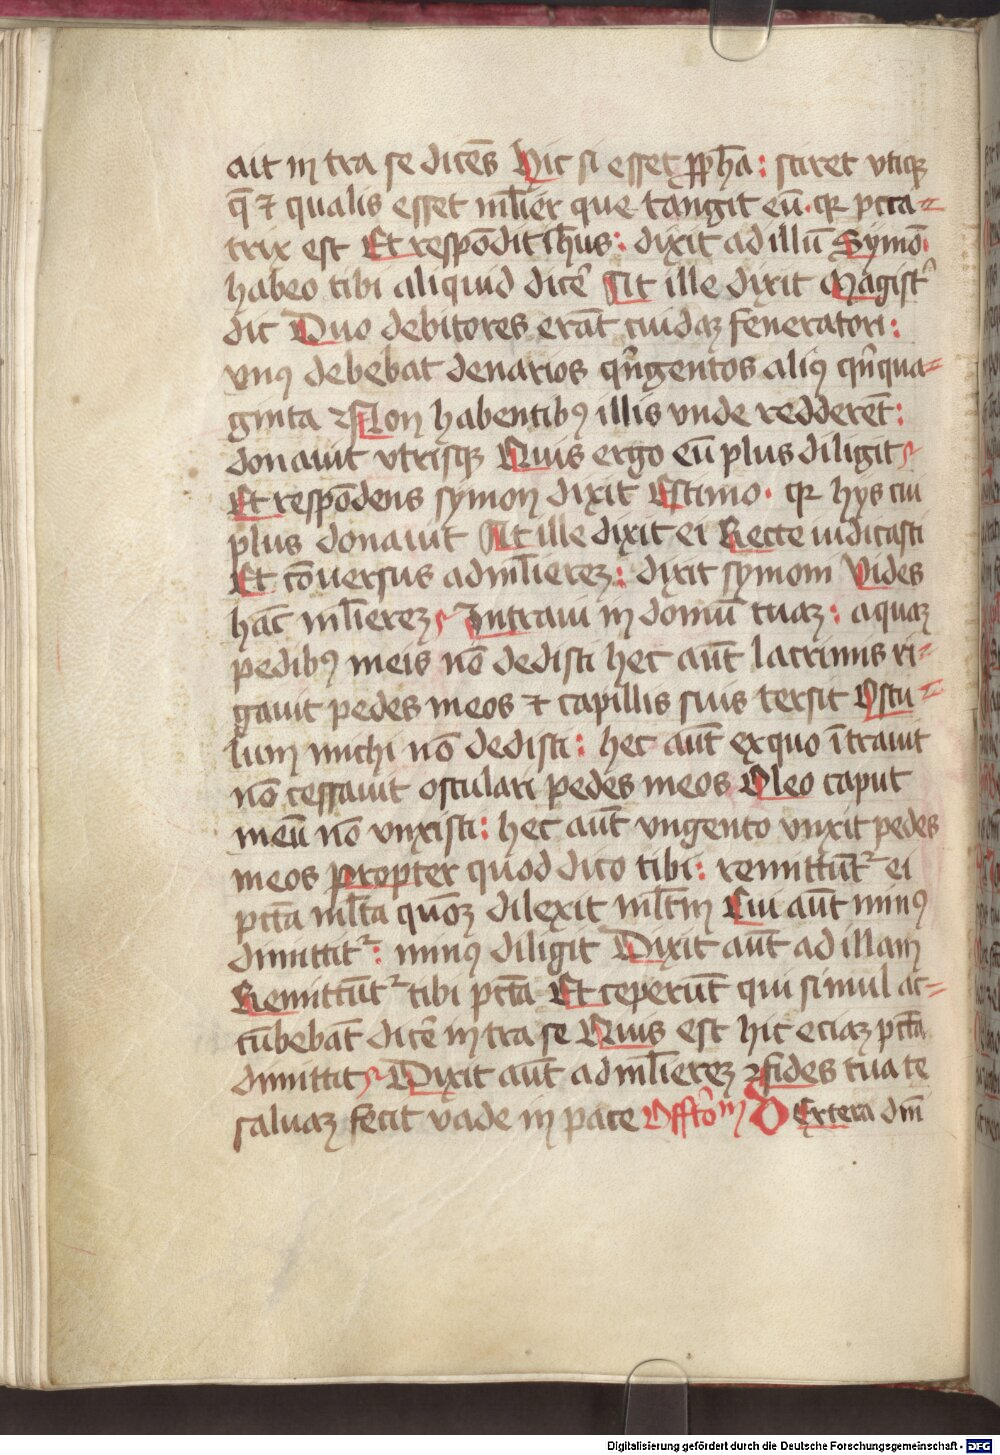 ait in tra se dicēs Hic si esset ꝓph̄a : sciret vtiqꝫ
q̄ ⁊ qualis esset ml̄ier que tangit eū · qꝛ pcca=
trix est Et respōdit ih̄us : dixit ad illū Symō
habeo tibi aliquid dicē Ait ille dixit Magist̄
dic Duo debitores erāt cuidaꝫ feneratori :
vnꝰ debebat denarios qn̄gentos aliꝰ qn̄qua=
ginta Non habentibꝰ illis vnde redderēt :
donauit vtrisqꝫ Quis ergo eū plus diligit
Et respōdens symon dixit Estimo · qꝛ hys cui
plus donauit At ille dixit ei Recte iudicasti
Et cōuersus ad ml̄iereꝫ : dixit symoni Vides
hāc ml̄iereꝫ Intraui in domū tuaꝫ : aquaꝫ
pedibꝰ meis nō dedisti hec aūt lacrimis ri=
gauit pedes meos ⁊ capillis suis tersit Oscu=
lum michi nō dedisti : hec aūt exquo ītrauit
nō cessauit osculari pedes meos Oleo caput
meū nō vnxisti : hec aūt vngento vnxit pedes
meos Propter quod dico tibi : remittūtᷣ ei
pctā ml̄ta quōꝫ dilexit ml̄tm Cui aūt minꝰ
dimittitᷣ : minꝰ diligit Dixit aūt ad illam
Remittūtᷣ tibi pctā Et ceperūt qui simul ac=
cūbebāt dicē in tra se Quis est hic eciaꝫ pctā
dimittit Dixit aūt ad ml̄iereꝫ fides tua te
saluaꝫ fecit vade in pace Offtōm Dextera dn̄i
Digitalisierung gefördert durch die Deutsche Forschungsgemeinschaft - DFG